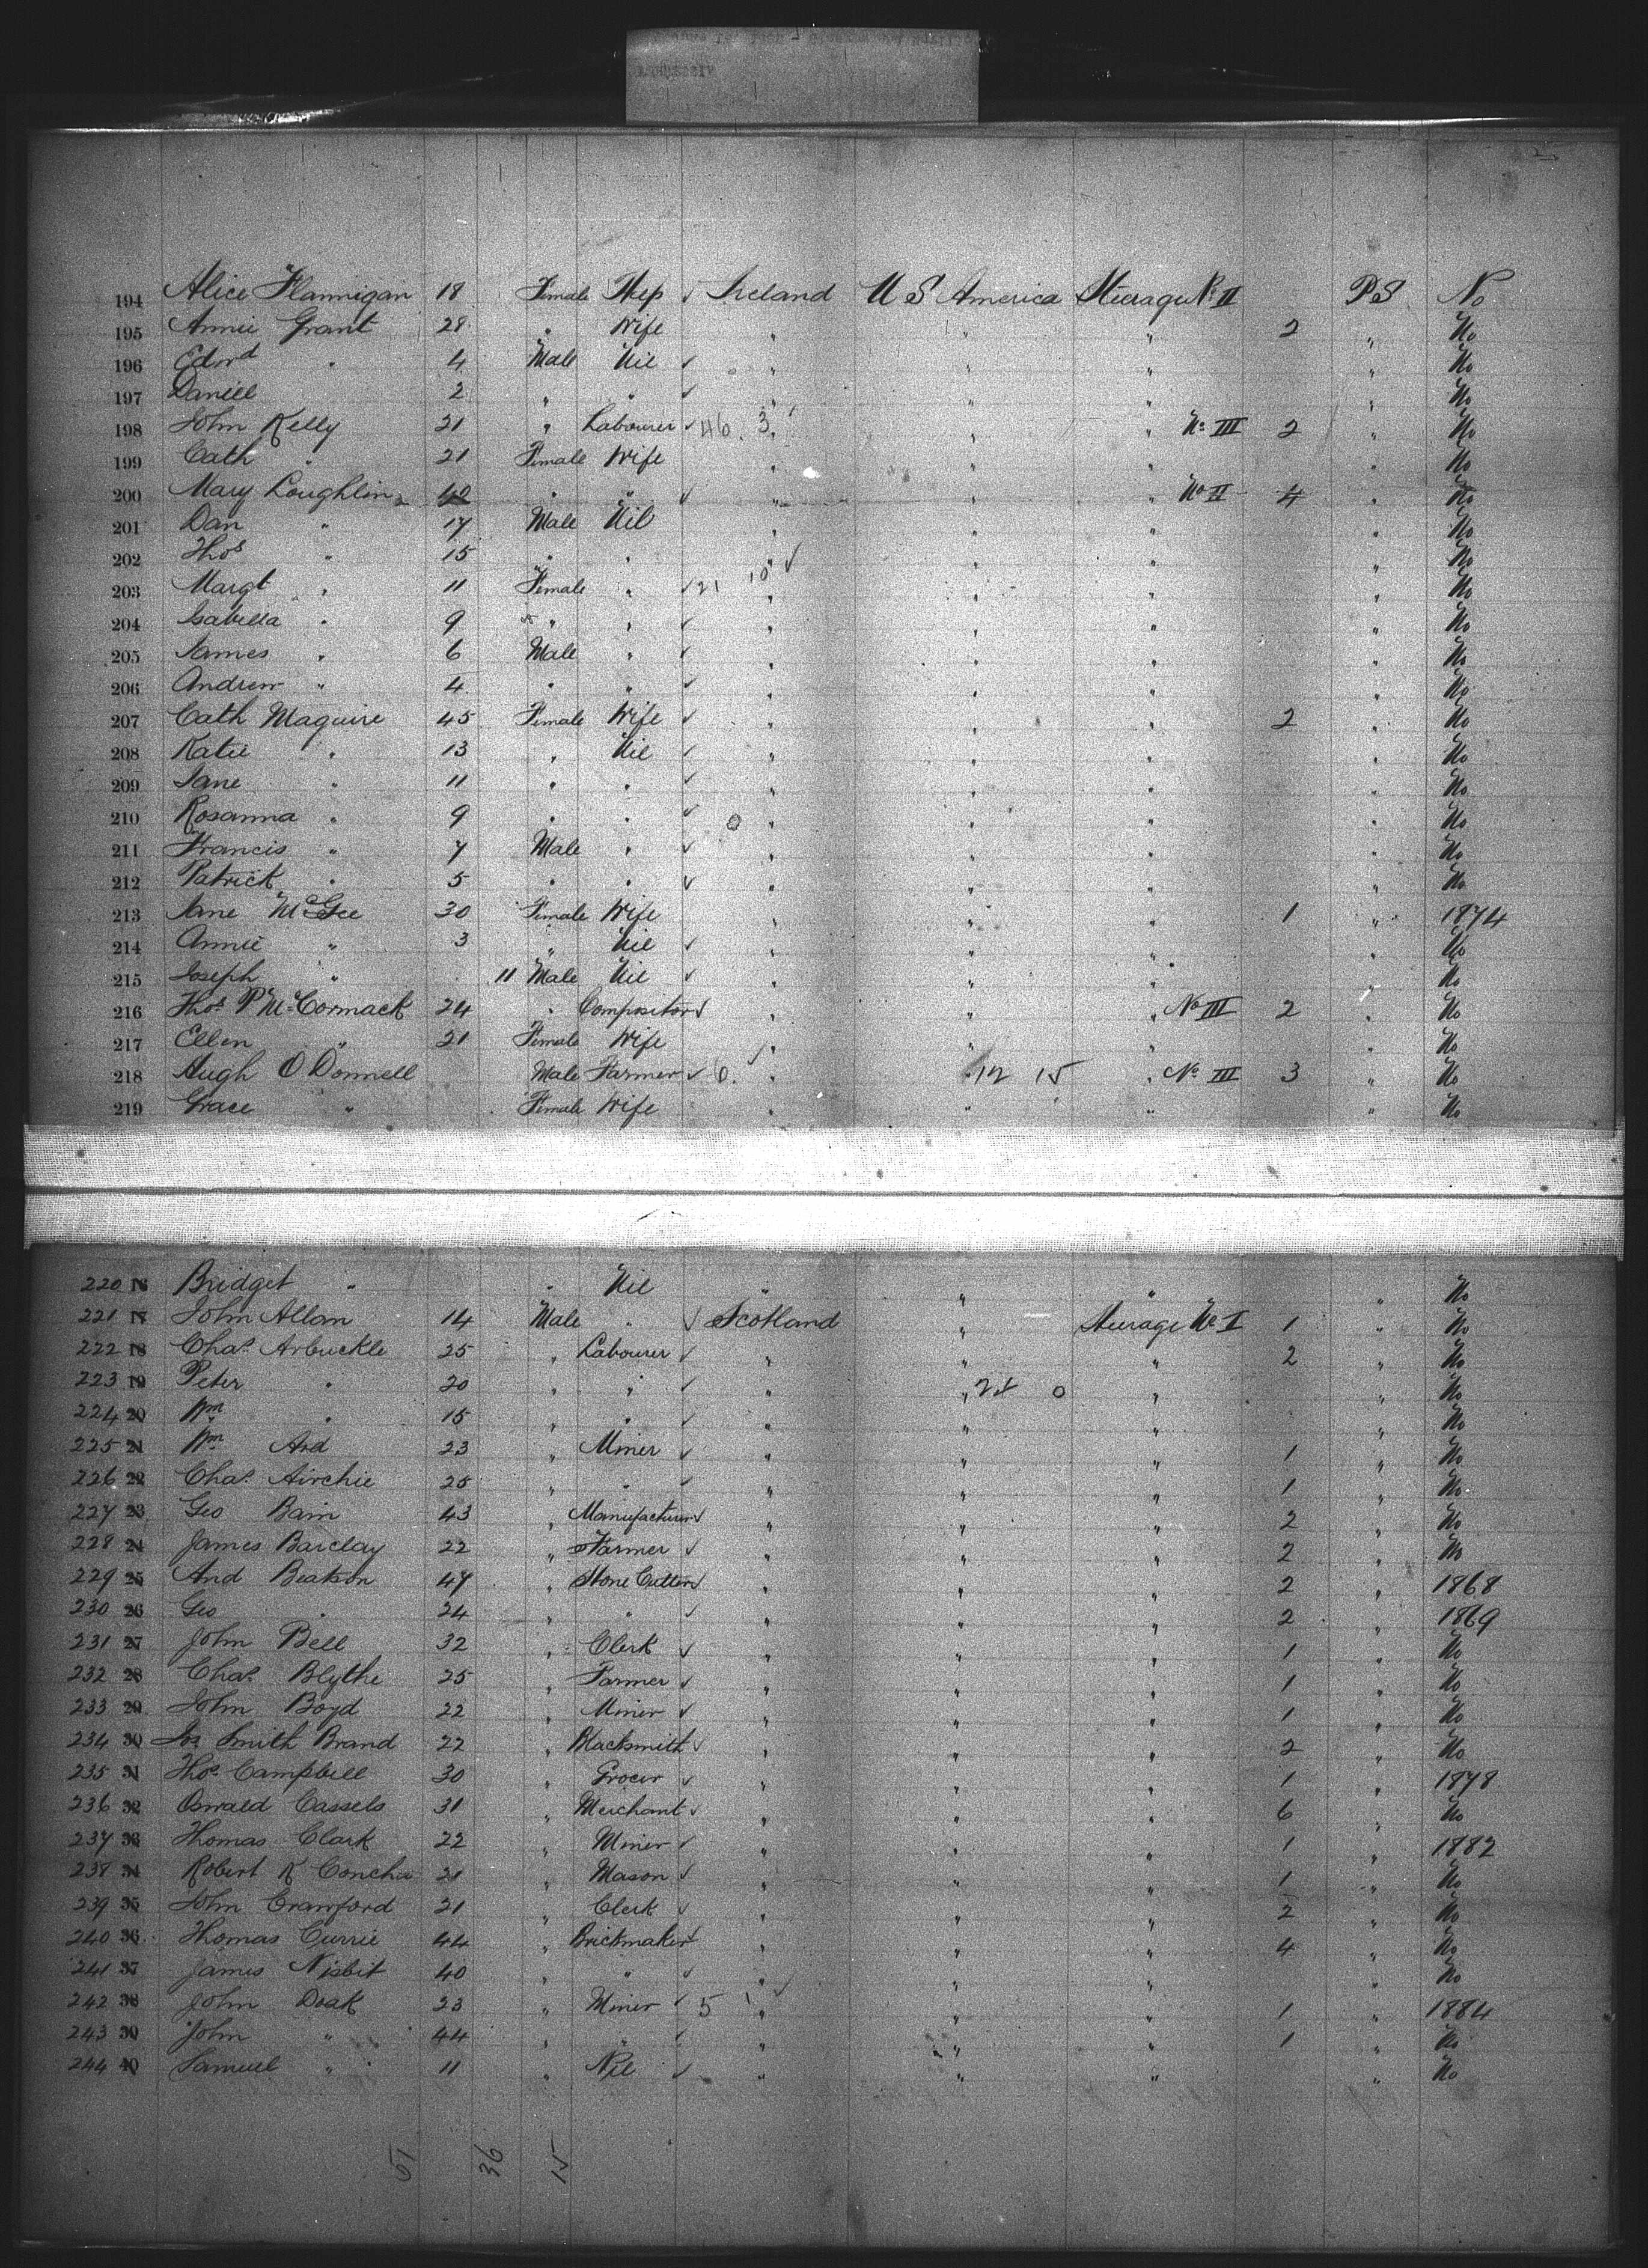 194 Alice Flannigan 18 Female Step ✓ Ireland U S America Steerage No II P S No
195 Annie Grant 28 " Wife " " " 2 " No
196 Edwd " 4 Male Nil ✓ " " " " No
197 Daniel 2 " " ✓ " " " " No
198 John Kelly 21 " Labourer ✓ 46 3 " " " No III 2 " No
199 Cath " 21 Female Wife " " " " No
200 Mary Loughlin 42 " " ✓ " " " No II 4 " No
201 Dan " 17 Male Nil " " " " No
202 Thos " 15 " " " ✓ " " " No
203 Margt " 11 Female " ✓ 21 10 " " " " No
204 Isabella " 9 " " ✓ " " " " No
205 James " 6 Male " ✓ " " " " No
206 Andrew " 4 " " ✓ " " " " No
207 Cath Maguire 45 Female Wife ✓ " " " 2 " No
208 Katie " 13 " Nil ✓ " " " " No
209 Jane " 11 " " ✓ " " " " No
210 Rosanna " 9 " " ✓ 0 " " " " No
211 Francis " 7 Male " ✓ " " " " No
212 Patrick " 5 " " ✓ " " " " No
213 Jane McGee 30 Female Wife " " " 1 " 1874
214 Annie " 3 " Nil ✓ " " " " No
215 Joseph " 11 Male Nil ✓ " " " " No
216 Thos P McCormack 24 " Compositor ✓ " " " No III 2 " No
217 Ellen " 21 Female Wife " " " " No
218 Hugh O Donnell Male Farmer ✓ 6 " " 12 15 " No III 3 " No
219 Grace " Female Wife " " " " No
220 16 Bridget " " Nil " " " " No
221 17 John Allan 14 Male " ✓ Scotland " Steerage No I 1 " No
222 18 Chas Arbuckle 25 " Labourer ✓ " " " 2 " No
223 19 Peter " 20 " " ✓ " " 24 0 " " No
224 20 Wm " 15 " " ✓ " " " " No
225 21 Wm Ard 23 " Miner ✓ " " " 1 " No
226 22 Chas Airchie 25 " " ✓ " " " 1 " No
227 23 Geo Bain 43 " Manufacturer ✓ " " " 2 " No
228 24 James Barclay 22 " Farmer ✓ " " " 2 " No
229 25 And Beatson 47 " Stone Cutter ✓ " " " 2 " 1868
230 26 Geo " 24 " " ✓ " " " 2 " 1869
231 27 John Bell 32 " Clerk ✓ " " " 1 " No
232 28 Chas Blythe 25 " Farmer ✓ " " " 1 " No
233 29 John Boyd 22 " Miner ✓ " " " 1 " No
234 30 Jos Smith Brand 22 " Blacksmith ✓ " " " 2 " No
235 31 Thos Campbell 30 " Grocer ✓ " " " 1 " 1878
236 32 Oswald Cassels 31 " Merchant ✓ " " " 6 " No
237 33 Thomas Clark 22 " Miner ✓ " " " 1 " 1882
238 34 Robert K 21 " Mason ✓ " " " 1 " No
239 35 John Crawford 21 " Clerk ✓ " " " 2 " No
240 36 Thomas Currie 44 " Brickmaker ✓ " " " 4 " No
241 37 James Nisbit 40 " " ✓ " ✓ " " " No
242 38 John Doak 23 " Miner ✓ 5 1 " " " 1 " 1884
243 39 John " 44 " " ✓ " " " 1 " No
244 40 Samuel " 11 " Nil ✓ " " " " No
51 36 15